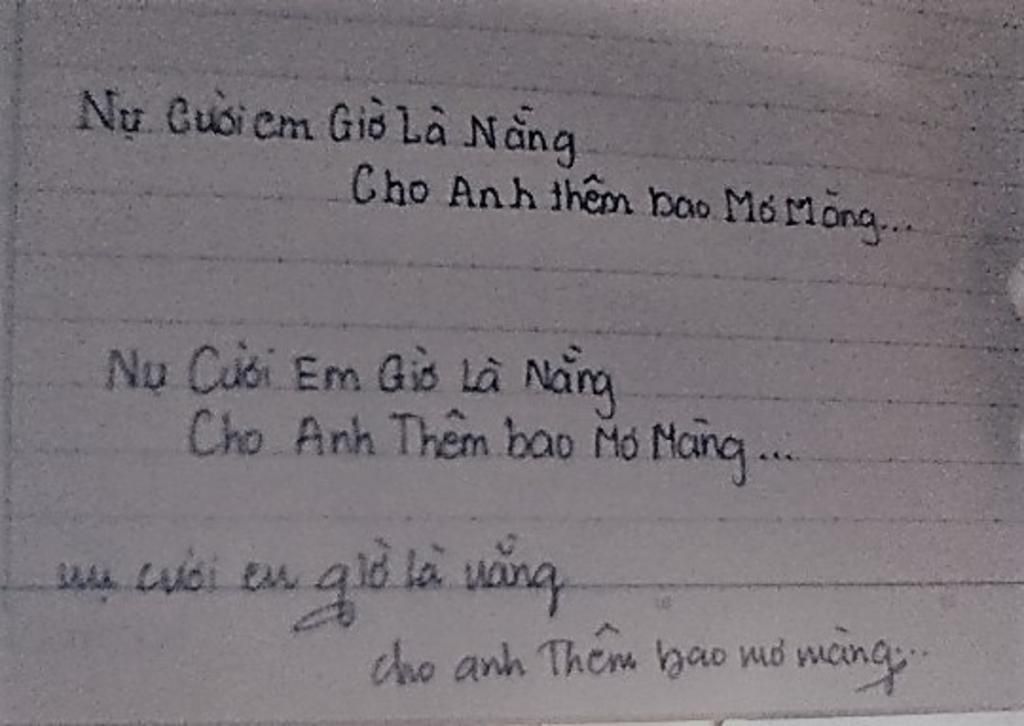 Nụ Cười em Giờ Là Nắng
Cho Anh thêm bao Mơ Màng...
Nụ Cười Em Giờ Là Nắng
Cho Anh Thêm bao Mơ Màng...
nụ cười em giờ là nắng
cho anh Thêm bao mơ màng...